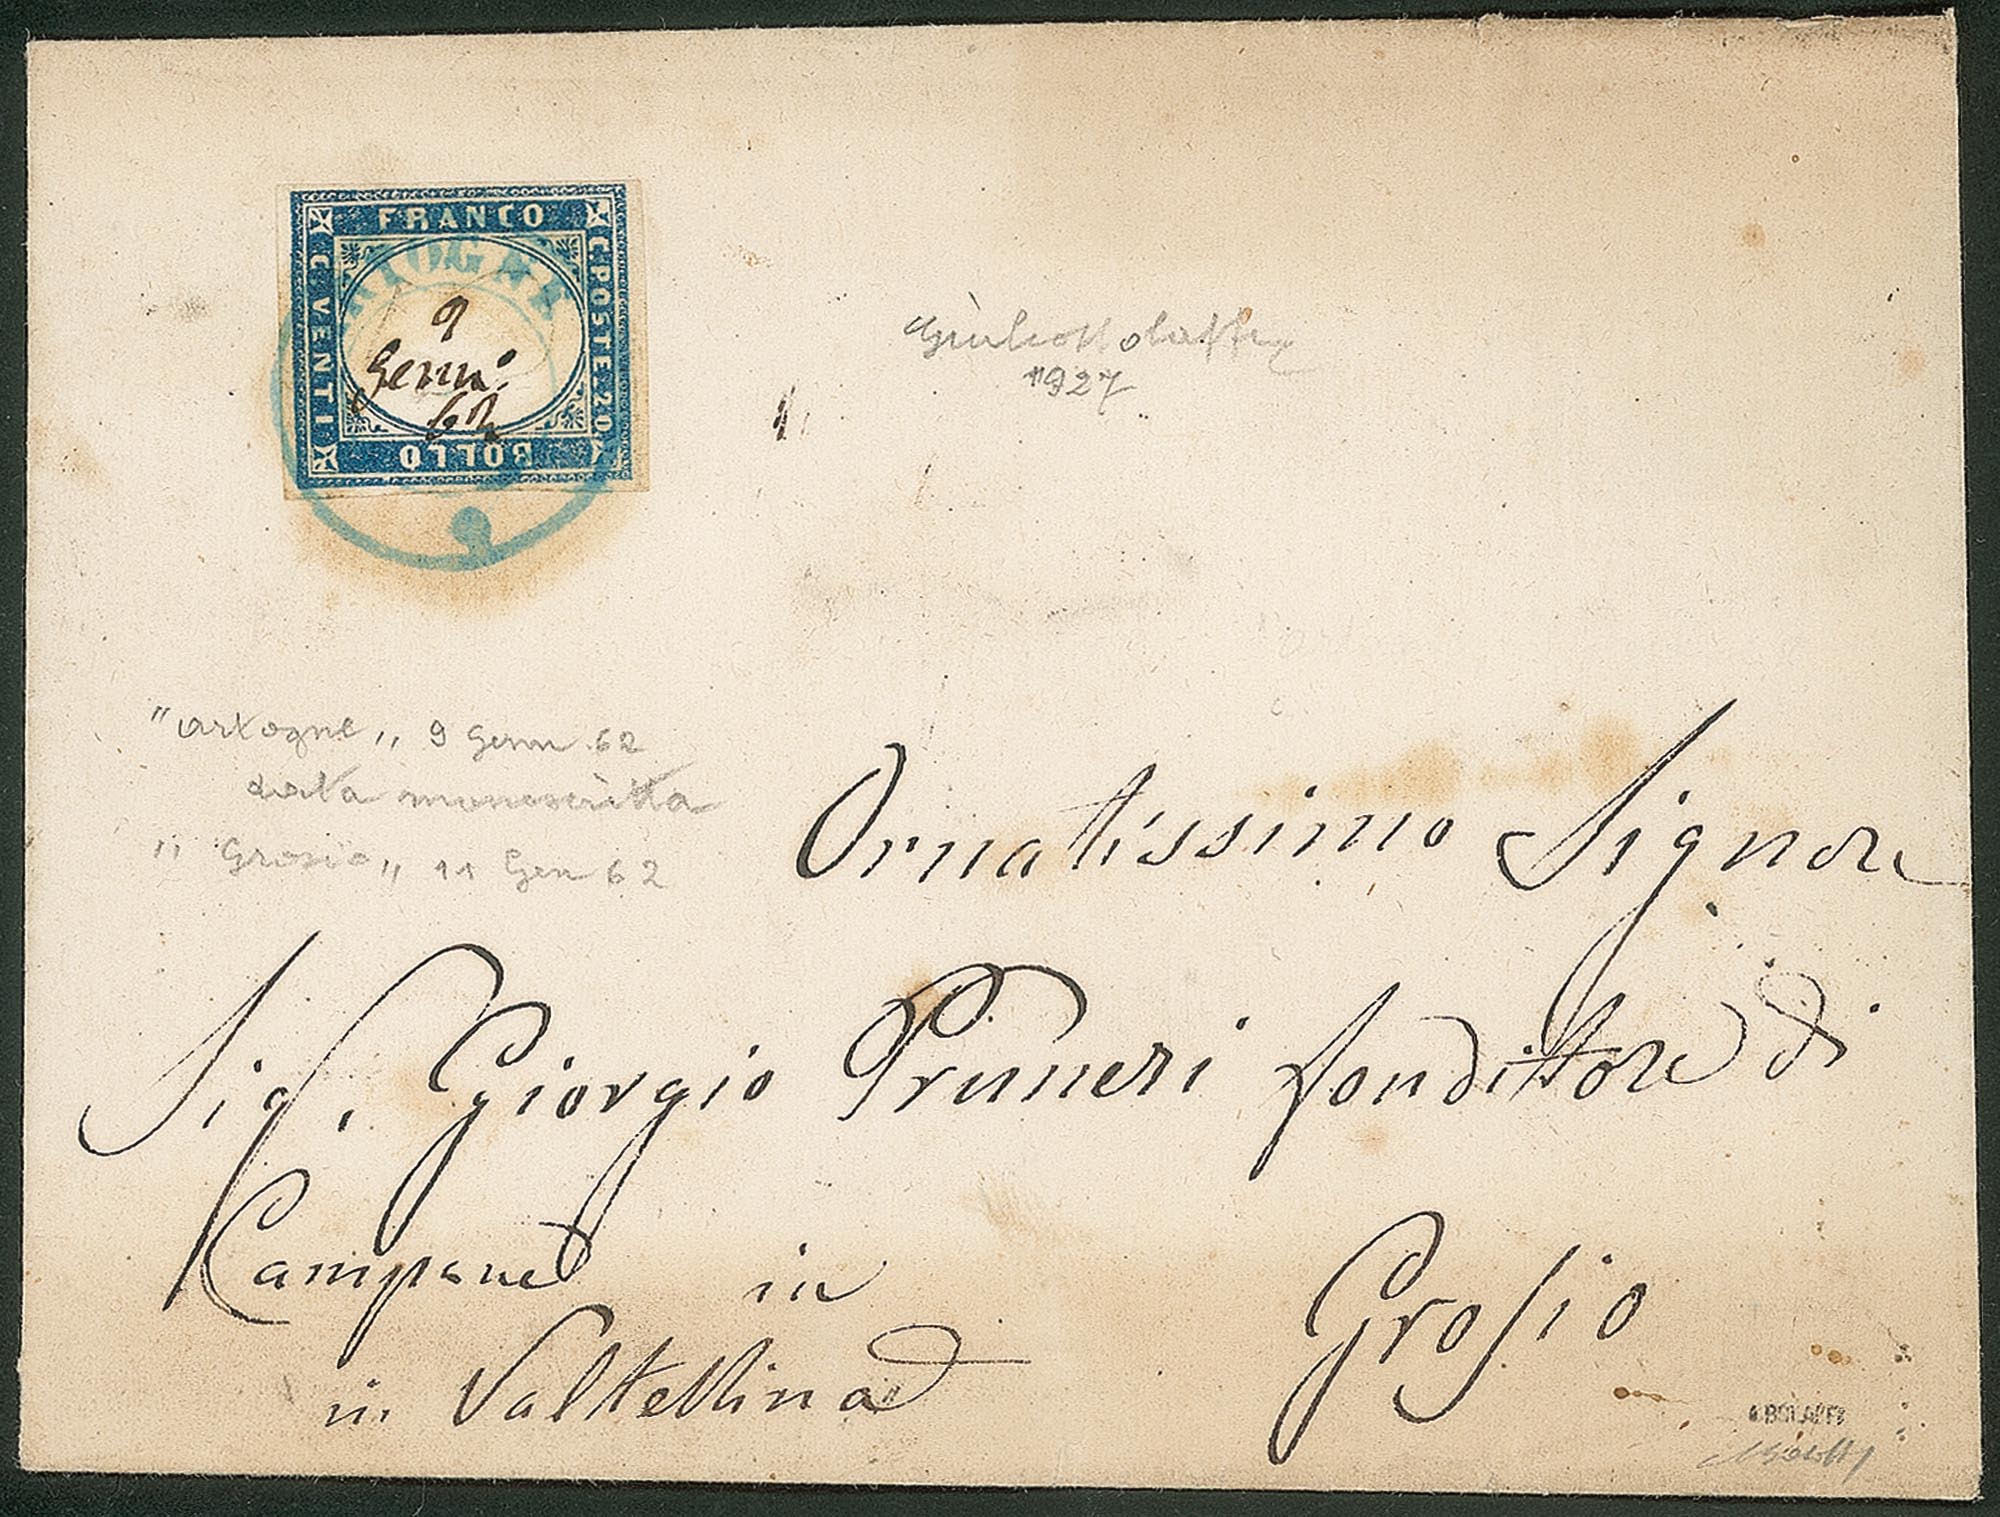 FRANCO
C. POSTE 20
C. VENTI
BOLLO
9
Genn:
62
1927
"Artogne" 9 Genn 62
data manoscritta
"Grosio" 11 Gen 62
Ornatissimo Signore
Sig. Giorgio Pruneri fonditore di
Campane in Grosio
in Valtellina
A BOLAFFI